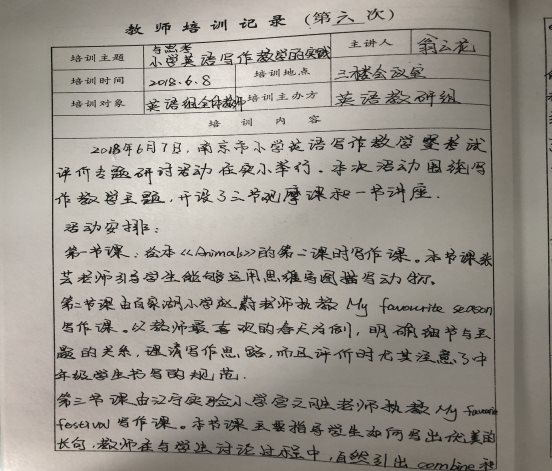 教师培训记录（第六次）
培训主题 小学英语写作教学的实践与思考 主讲人 翁云花
培训时间 2018.6.8 培训地点 三楼会议室
培训对象 英语组全体教师 培训主办方 英语教研组
培训内容
2018年6月7日，南京市小学英语写作教学暨考试
评价专题研讨活动在实小举行。本次活动围绕写
作教学主题，开设了三节观摩课和一节讲座.
活动安排：
第一节课：绘本《Animals》的第二课时写作课。本节课张
芸老师引导学生能够运用思维导图描写动物.
第二节课由百家湖小学赵蔚老师执教 My favourite season
写作课。以教师最喜欢的春天为例，明确细节与主
题的关系，理清写作思路，而且评价时尤其注意了中
年级学生书写的规范.
第三节课由江宁实验小学宫文胜老师执教 My favourite
festival 写作课。本节课主要指导学生如何写出优美的
长句，教师在与学生讨论过程中，自然引出 combine